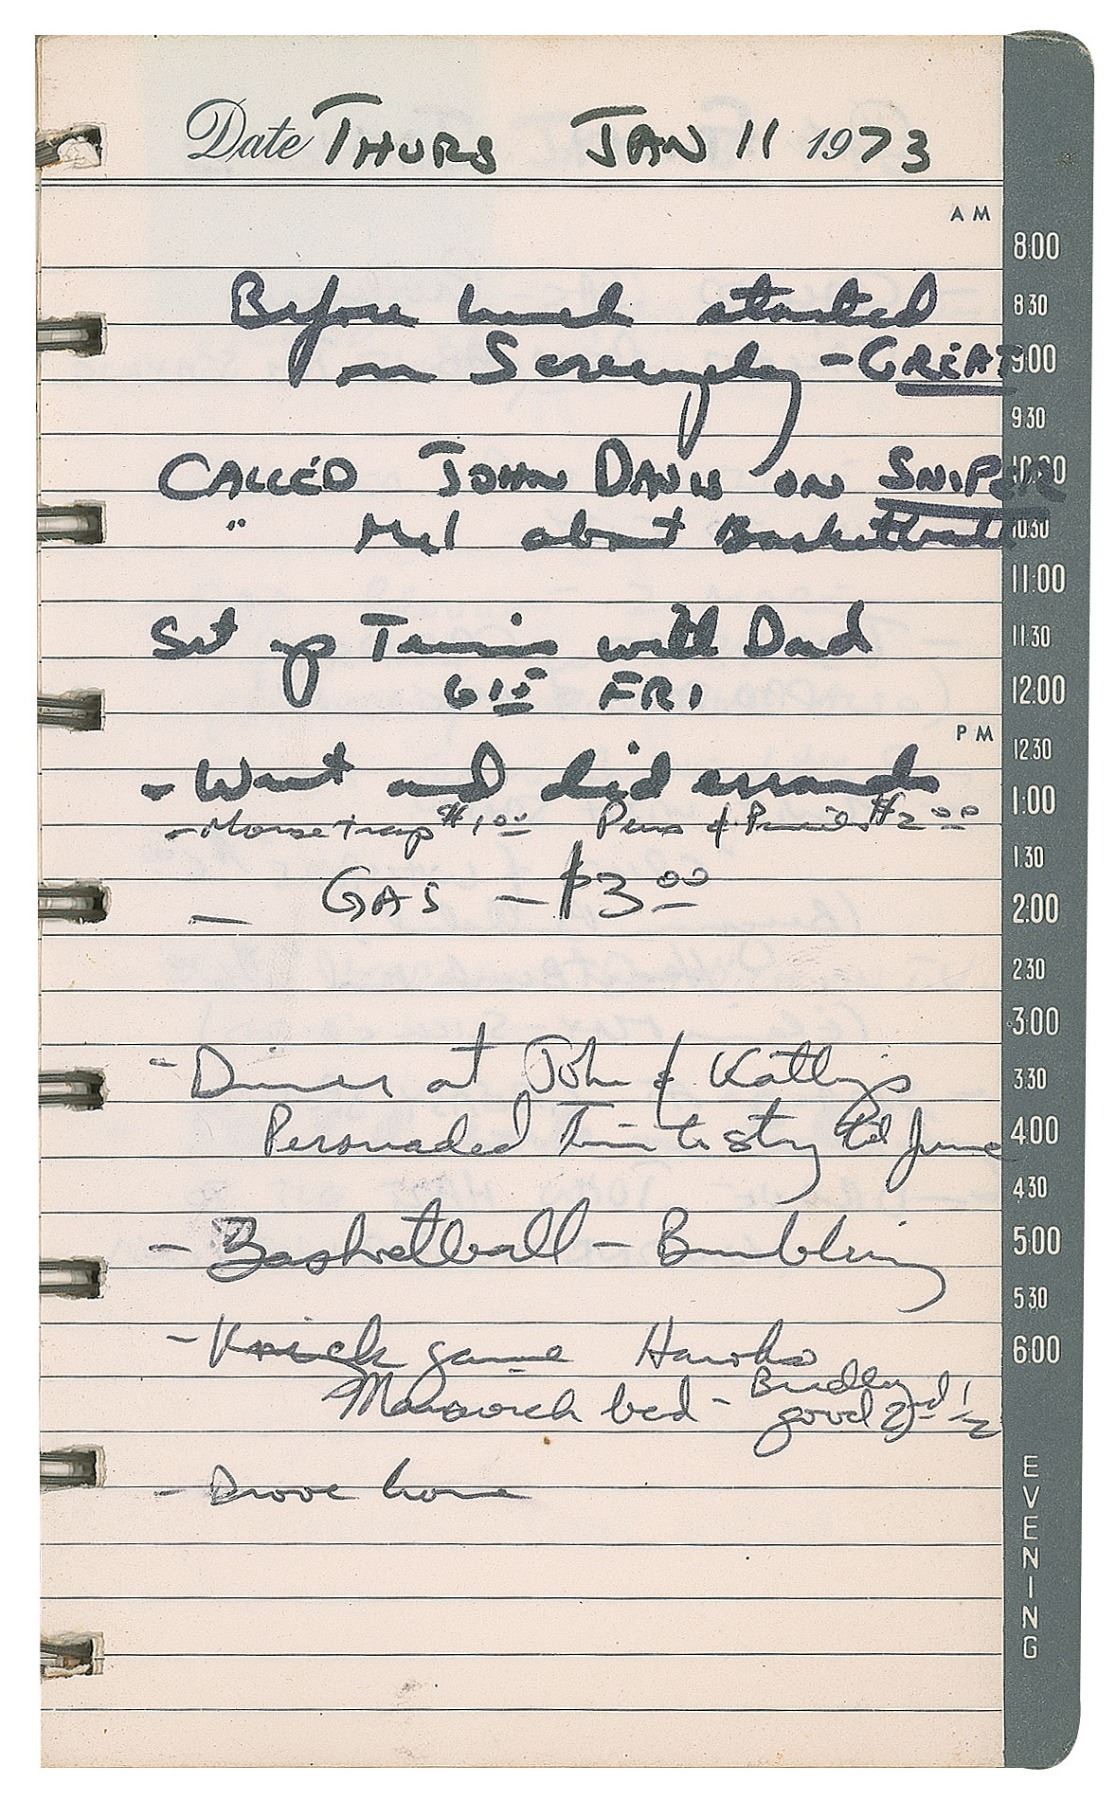 Date THURS JAN 11 1973
AM
8:00
Before lunch started
8:30
on Screenplay - GREAT
9:00
9:30
CALLED JOHN DAVIS ON SNIPER
10:00
" Mel about Basketball
10:30
11:00
Set up Tennis with Dad
11:30
6 15 FRI
12:00
PM
12:30
- Went and did errands
1:00
- Mouse trap $1.00 Pens & Pencils $2.00
1:30
- GAS - $3.00
2:00
2:30
3:00
- Dinner at John & Kathy's
3:30
Persuaded Tim to stay til June
4:00
4:30
- Basketball - Bumbling
5:00
5:30
- Knick game Hawks
6:00
Maravich bad - Bradley good 2nd 1/2
EVENING
- Drove home